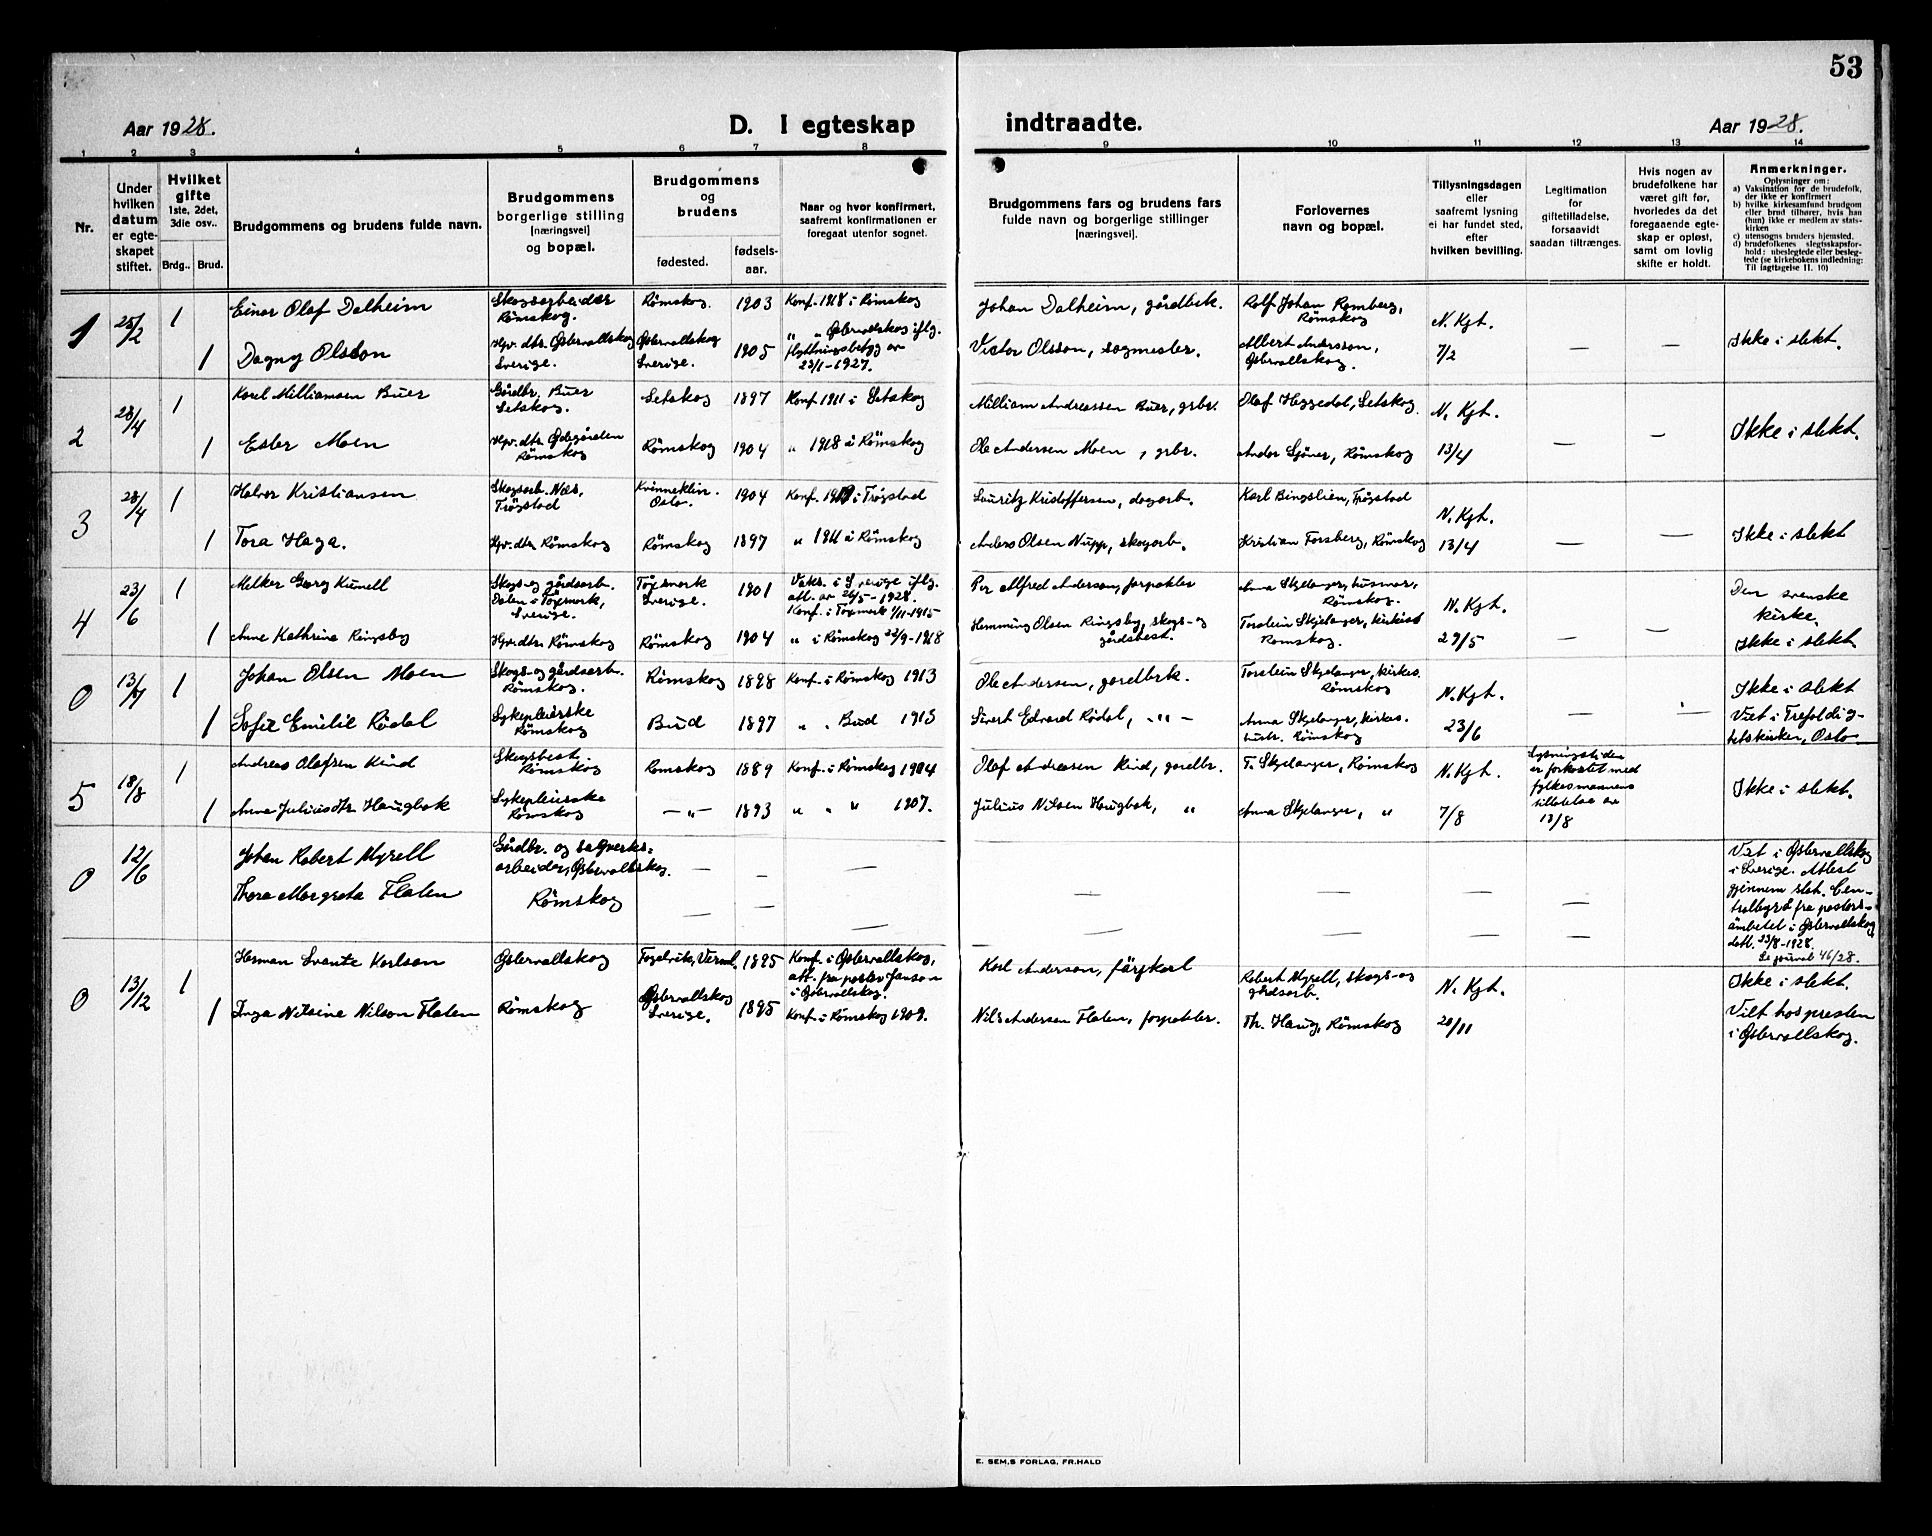 53
Aar 1928.
D. I egteskap
indtraadte.
Aar 1928.
1 2 3 4 5 6 7 8 9 10 11 12 13 14
Nr.
Under hvilken datum er egteskapet stiftet.
Hvilket gifte 1ste, 2det, 3die osv..
Brdg.. Brud.
Brudgommens og brudens fulde navn.
Brudgommens borgerlige stilling [næringsvei] og bopæl.
Brudgommens og brudens
fødested.
fødsels-aar.
Naar og hvor konfirmert, saafremt konfirmationen er foregaat utenfor sognet.
Brudgommens fars og brudens fars fulde navn og borgerlige stillinger [næringsvei].
Forlovernes navn og bopæl.
Tillysningsdagen eller saafremt lysning ei har fundet sted, efter hvilken bevilling.
Legitimation for giftetilladelse, forsaavidt saadan tiltrænges.
Hvis nogen av brudefolkene har været gift før, hvorledes da det foregaaende egteskap er opløst, samt om lovlig skifte er holdt.
Anmerkninger.
Oplysninger om:
a) Vaksination for de brudefolk, der ikke er konfirmert
b) hvilke kirkesamfund brudgom eller brud tilhører, hvis han (hun) ikke er medlem av statskirken
c) utensogns bruders hjemsted.
d) brudefolkenes slegtsskapsforhold: ubeslegtede eller beslegtede (se kirkebokens indledning: Til iagttagelse II. 10)
1 25/2 1 Einar Olaf Dalheim Skogsarbeider Römskog. Römskog. 1903 Konf. 1918 i Römskog Johan Dalheim, gårdbrk. Rolf Johan Romberg, Römskog N. Kgt.
1 Dagny Olsson Hpv. dtr. Østervallskog Sverige. Østervallskog Sverige. 1905 " " Østervallskog iflg. flyttningsbetyg av 23/1-1927. Victor Olsson, sagmester. Albert Andersson, Østervallskog. 7/2 — — Ikke i slekt.
2 28/4 1 Karel Milliamsen Buer Gårdbr. Buer Setskog. Setskog 1897 Konf. 1911 i Setskog Milliam Andreassen Buer, grbr. Olaf Heggedal, Setskog. N. Kgt.
1 Ester Moen Hpv. dtr. Ødegården Römskog Römskog 1904 " 1918 i Römskog Ole Andersen Moen, grbr. Andor Sjöner, Römskog 13/4 — — Ikke i slekt.
3 28/4 1 Halvor Kristiansen Skogsarb. Næs, Trögstad Kvinneklin. Oslo. 1904 Konf. 1919 i Trögstad Lauritz Kristoffersen, dagarb. Karl Bingslien, Trögstad N. Kgt.
1 Tora Haga. Hpv. dtr. Römskog Römskog 1897 " 1911 i Römskog Anders Olsen Nupp, skogarb. Kristian Forsberg, Römskog 13/4 — — Ikke i slekt
4 23/6 1 Melker Georg Kunell Skogs- og gårdsarb. Dalen i Töxmark, Sverige. Töxmark Sverige. 1901 Vaks. i Sverige iflg. att. av 26/5-1928. Konf. i Töxmark 1/11-1915 Per Alfred Anderson, forpakter Anna Skjelanger, husmor, Römskog. N. Kgt. Den svenske kirke.
1 Anne Kathrine Ringsby Hpv. dtr. Römskog Römskog 1904 " i Römskog 22/9-1918 Hemming Olsen Ringsby, skogs- og gårdsbest. Torstein Skjelanger, kirkesa Romskog. 29/5 — — Ikke i slekt.
0 13/7 1 Johan Olsen Moen Skogs- og gårdsarb. Römskog. Römskog 1898 Konf. i Römskog 1913 Ole Andersen, gardbrk. Torstein Skjelanger, kirkes. Römskog N. Kgt. Ikke i slekt
1 Sofie Emilie Rödal Sykepleierske Römskog Bud 1897 " " Bud 1913 Sivert Edvard Rödal, -"- Anna Skjelanger, kirkes. hustr. Römskog 23/6 — — Viet i Trefoldighetskirken, Oslo
5 18/8 1 Andreas Olafsen Kind Skogsbest. Römskog Romskog 1889 Konf. i Römskog 1904 Olaf Andreasen Kind, gardbr. T. Skjelanger, Römskog N. Kgt. Lysningstiden er forkortet med fylkesmannens tillatelse av 13/8
1 Anna Juliusdtr. Haugbak Sykepleierske Römskog -"- 1893 " " " 1907. Julius Nilsen Haugbak, " Anna Skjelanger, " 7/8 Ikke i slekt.
0 12/6 Johan Robert Myrell Gårdbr. og sagverksarbeider, Østervallskog. — — — — — —
Thora Margreta Flaten Römskog — — — — — — — Viet i Østervallskog i Sverige. Attest gjennem stat. Centralbyrå fra pastorsämbetet i Østervallskog datt. 23/8-1928. Se journal 46/28.
0 13/12 1 Herman Svante Karlson Østervallskog Fogelvik, Verml. 1895 Konf. i Østervallskog, att. fra pastor Janson i Østervallskog. Karl Anderson, färjkarl Robert Myrell, skogs- og gårdsarb. N. Kgt. Ikke i slekt.
1 Inga Nilsine Nilson Flaten Römskog Østervallskog Sverige. 1895 Konf. i Römskog 1909. Nils Andersen Flaten, forpakter. Th. Haug, Römskog 20/11 Viet hos presten i Østervallskog.
E. SEM,S FORLAG, FR.HALD